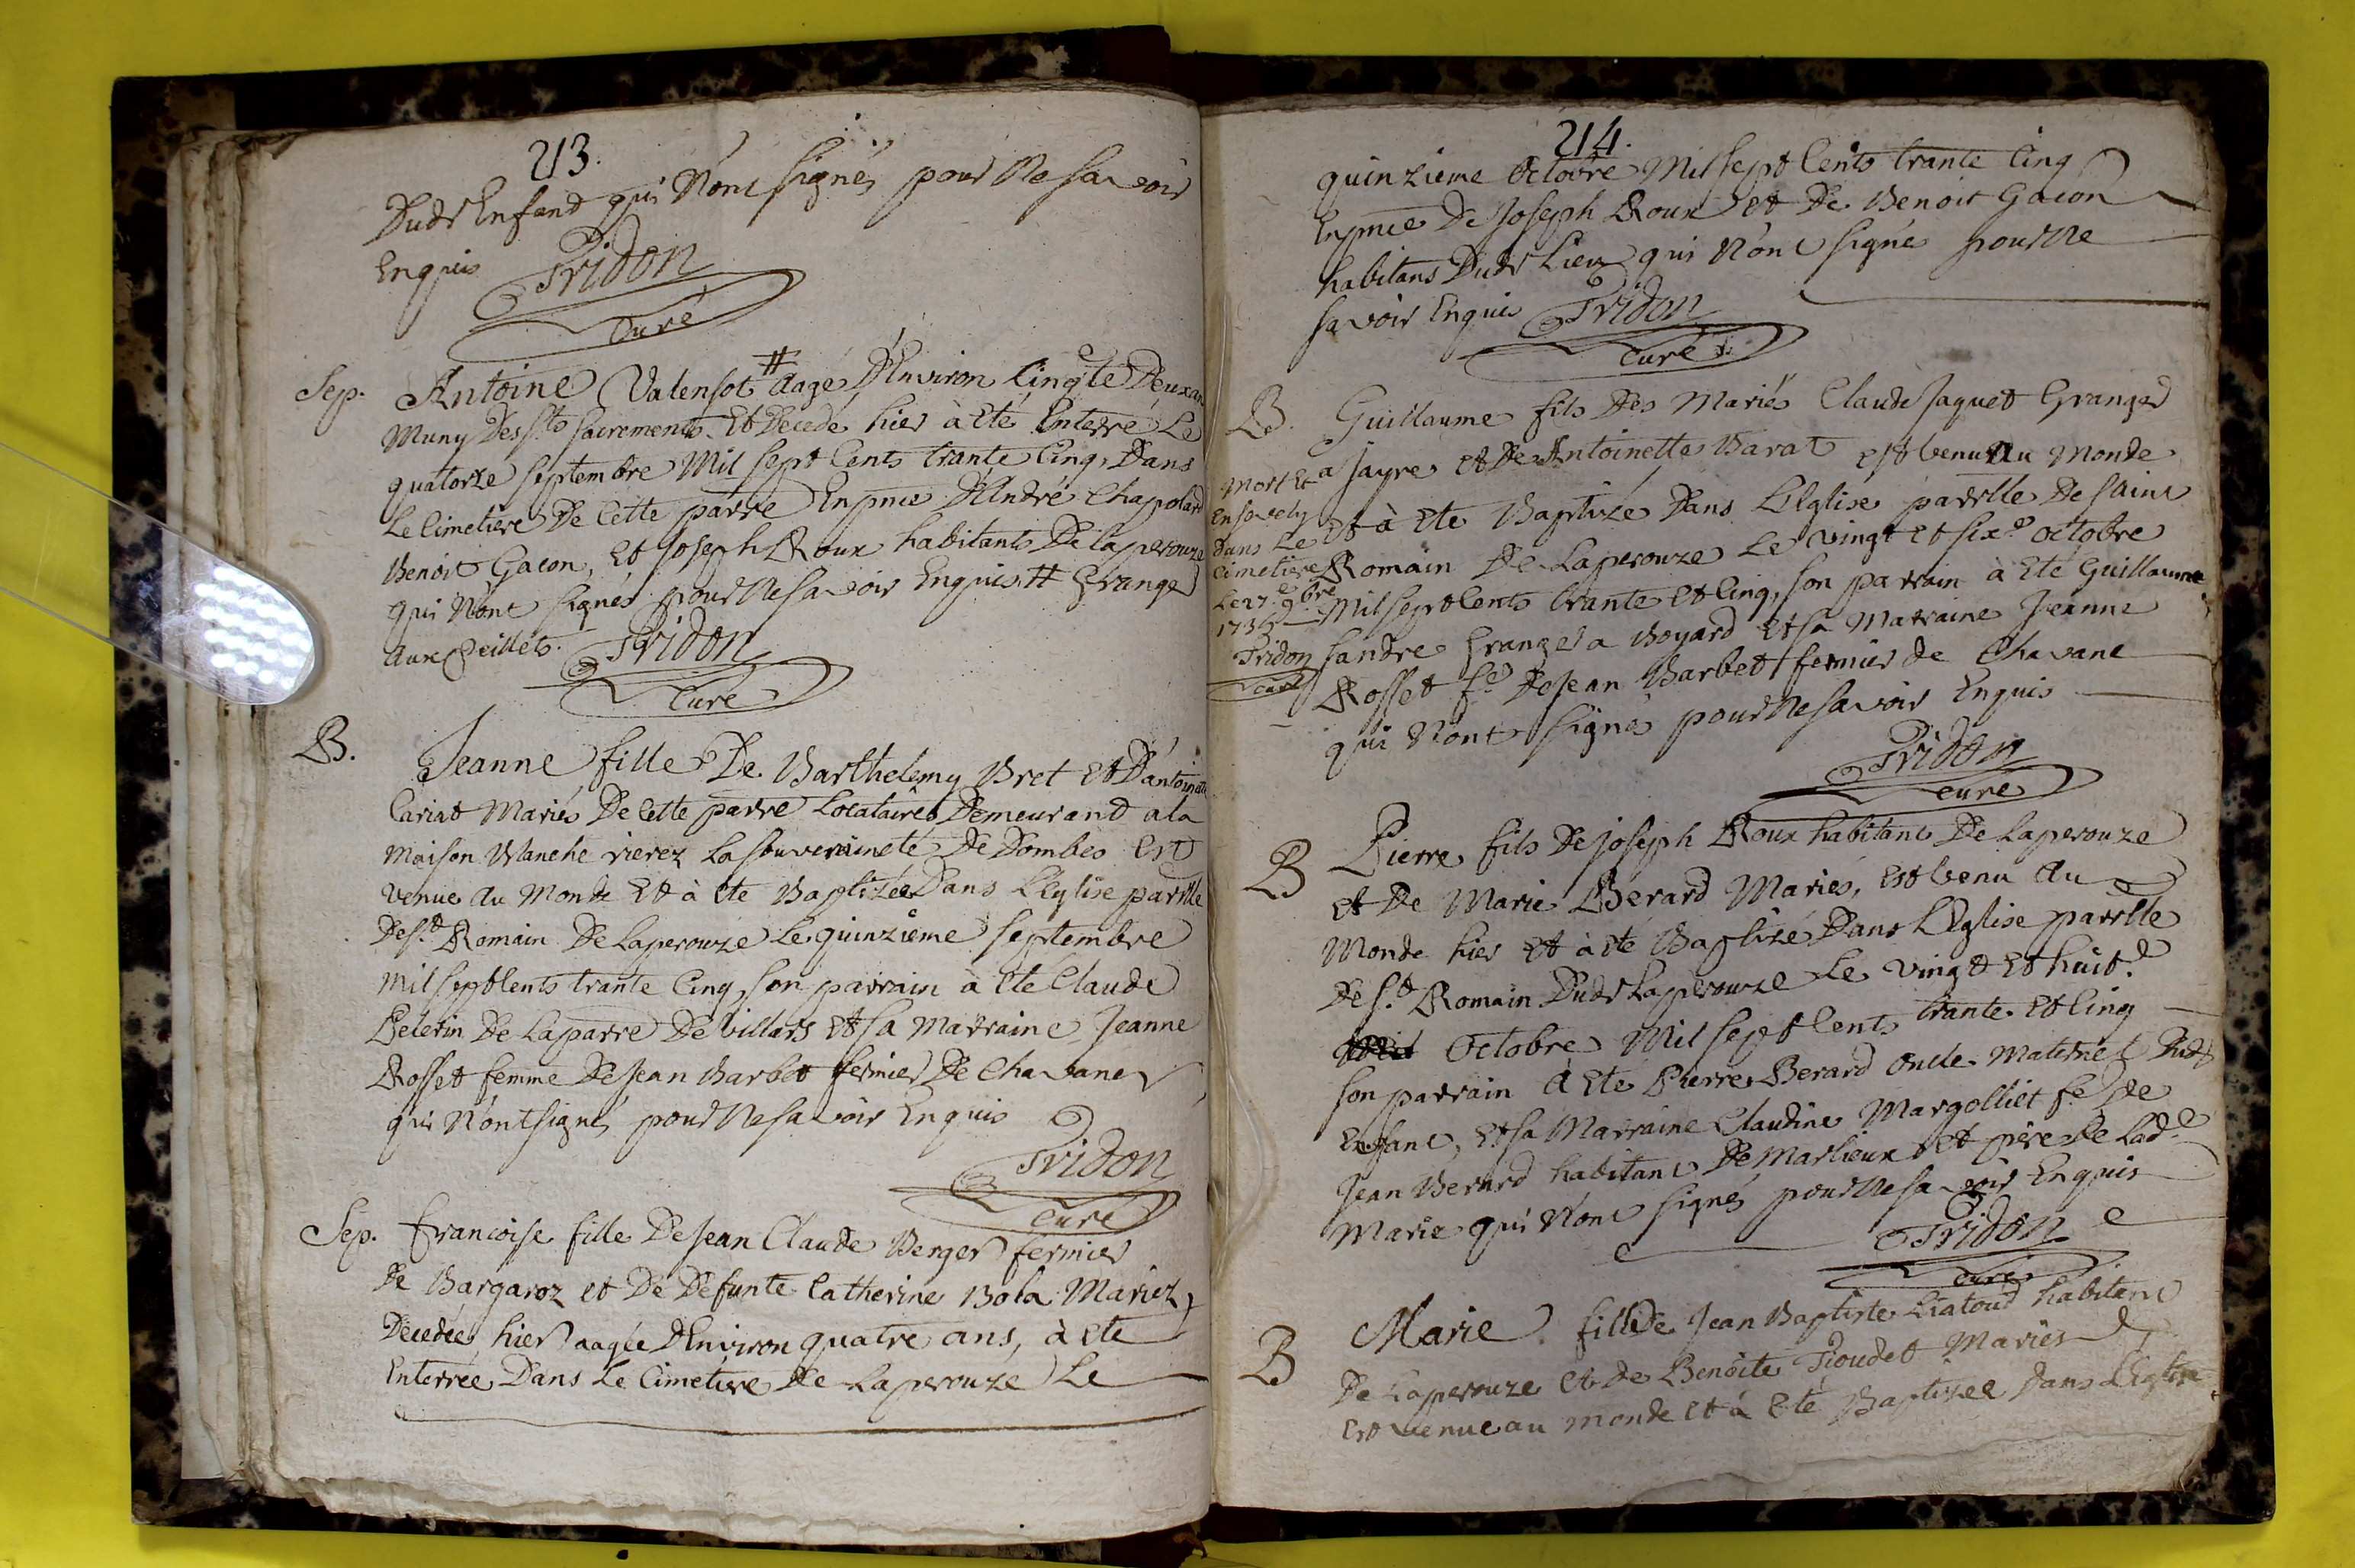 213.
Dudt Enfand qui N'ont signés pour Ne savoir
Enquis Tridon
Curé
Sep. Antoine Valensot # aagé D'Environ Cinqte Deux an
Muny Des Sts sacrements Et Decedé hier à Eté Enterré Le
quatorze septembre Mil sept Cents trante Cinq, Dans
Le Cimetiere De Cette parre En pnce D'André Chapolard
Benoit Gacon, Et Joseph Roux habitants De Laperouze
qui N'ont signés pour Ne savoir Enquis # Granger
aux Oeillets. Tridon
Curé
B. Jeanne fille De Barthelemy Bret Et D'antoinette
Cariat Mariés De Cette parre Locataires Demeurant a la
Maison Blanche rierez La souveraineté De Dombes Est
venue Au Monde Et à Eté Baptizée Dans L'Eglise parrlle
De St Romain De Laperouze Le quinzieme septembre
Mil sept Cents trante Cinq, son parrain à Eté Claude
Pelerin De La parre De Villars Et sa Marraine Jeanne
Rosset femme De Jean Barbet fermier De Chavane
qui N'ont signés pour Ne savoir Enquis
Tridon
Curé
Sep. Francoise fille De Jean Claude Berger fermier
De Bargaroz et De Defunte Catherine Bola Mariez,
Decedée, hier aagée D'Environ quatre ans, à Eté
Enterrée Dans Le Cimetiere De Laperouze Le
214.
quinzieme octobre Mil sept Cents trante Cinq
En pnce De Joseph Roux Et De Benoit Gacon
habitans Dudt Lieu qui N'ont signé pour Ne
savoir Enquis Tridon
Curé
B. Guillaume fils Des Mariés Claude Jaquet Granger
a Jayre et De Antoinette Barat est venu Au Monde
et à Eté Baptizé Dans L'Eglise parrlle De saint
Romain De Laperouze Le vingt et sixe octobre
Mil sept Cents trante et Cinq, son parrain à Eté Guillaume
sandre Granger a Boyard Et sa Marraine Jeanne
Rosset fe De Jean Barbet fermier de Chavane
qui N'ont signés pour Ne savoir Enquis
Tridon
curé
Mort Et
Ensevely
Dans Le
Cimetiere
Le 27e 9bre
1735
Tridon
curé
B Pierre fils De Joseph Roux habitant De Laperouze
et De Marie Berard Mariés, Est venu Au
Monde hier et à eté Baptizé Dans L'Eglise parrlle
De St Romain Dudt Laperouze Le vingt Et huite
Octobre Mil sept Cents trante et Cinq
son parrain à Eté Pierre Berard oncle Maternel Dudt
Enfant, et sa Marraine Claudine Margolliet fe de
Jean Berard habitant De Marlieux et pere De Lade
Marie qui N'ont signés pour Ne savoir Enquis
Tridon
Curé
B Marie fille De Jean Baptiste Liatoud habitant
De Laperouze Et De Benoite Pioudet Mariés
Est venue au monde et à Eté Baptizée Dans L'Eglise